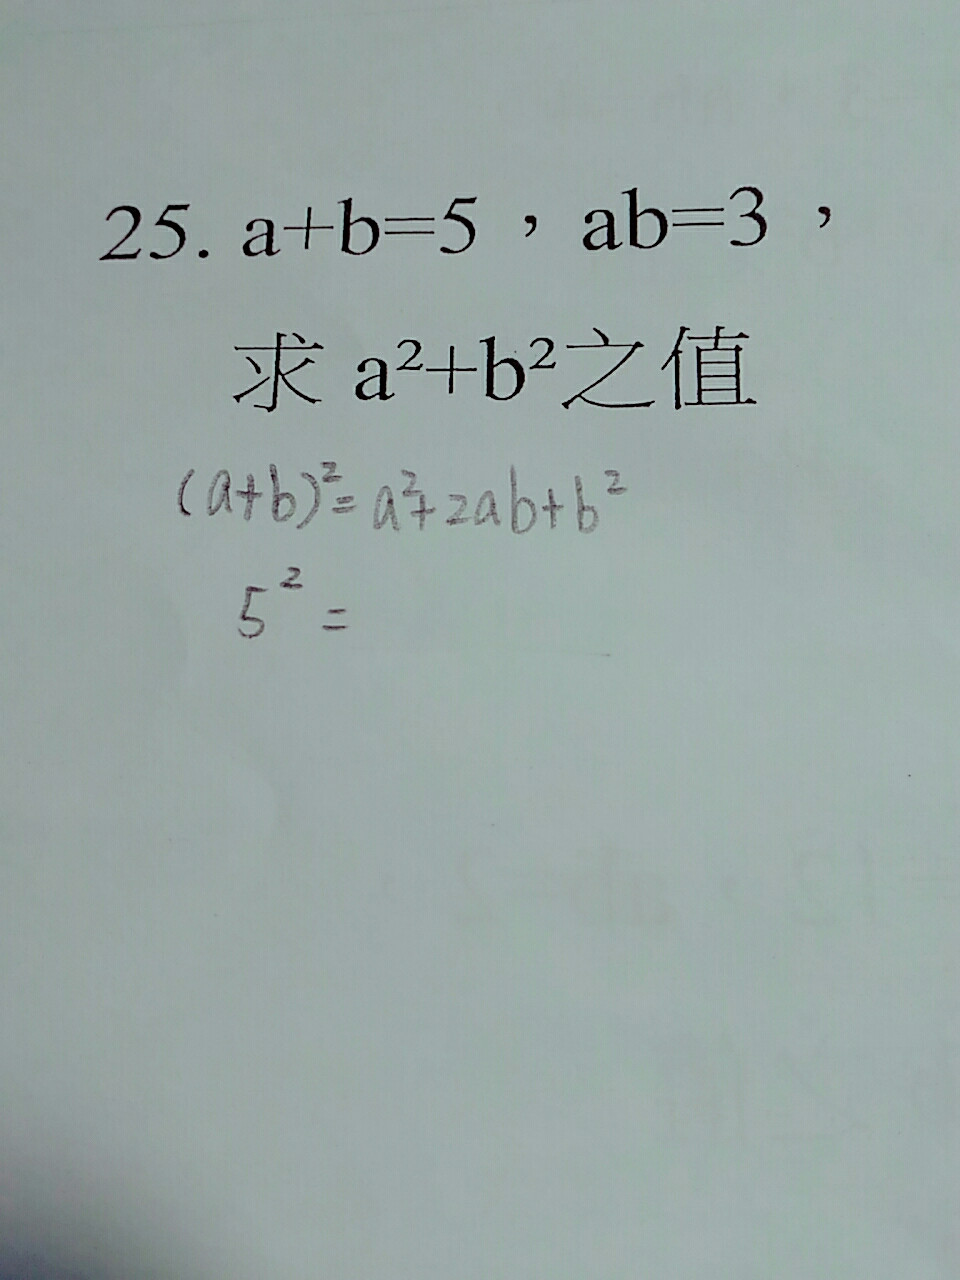 25. a+b=5，ab=3，
求 a²+b²之值
(a+b)²=a²+2ab+b²
5²=